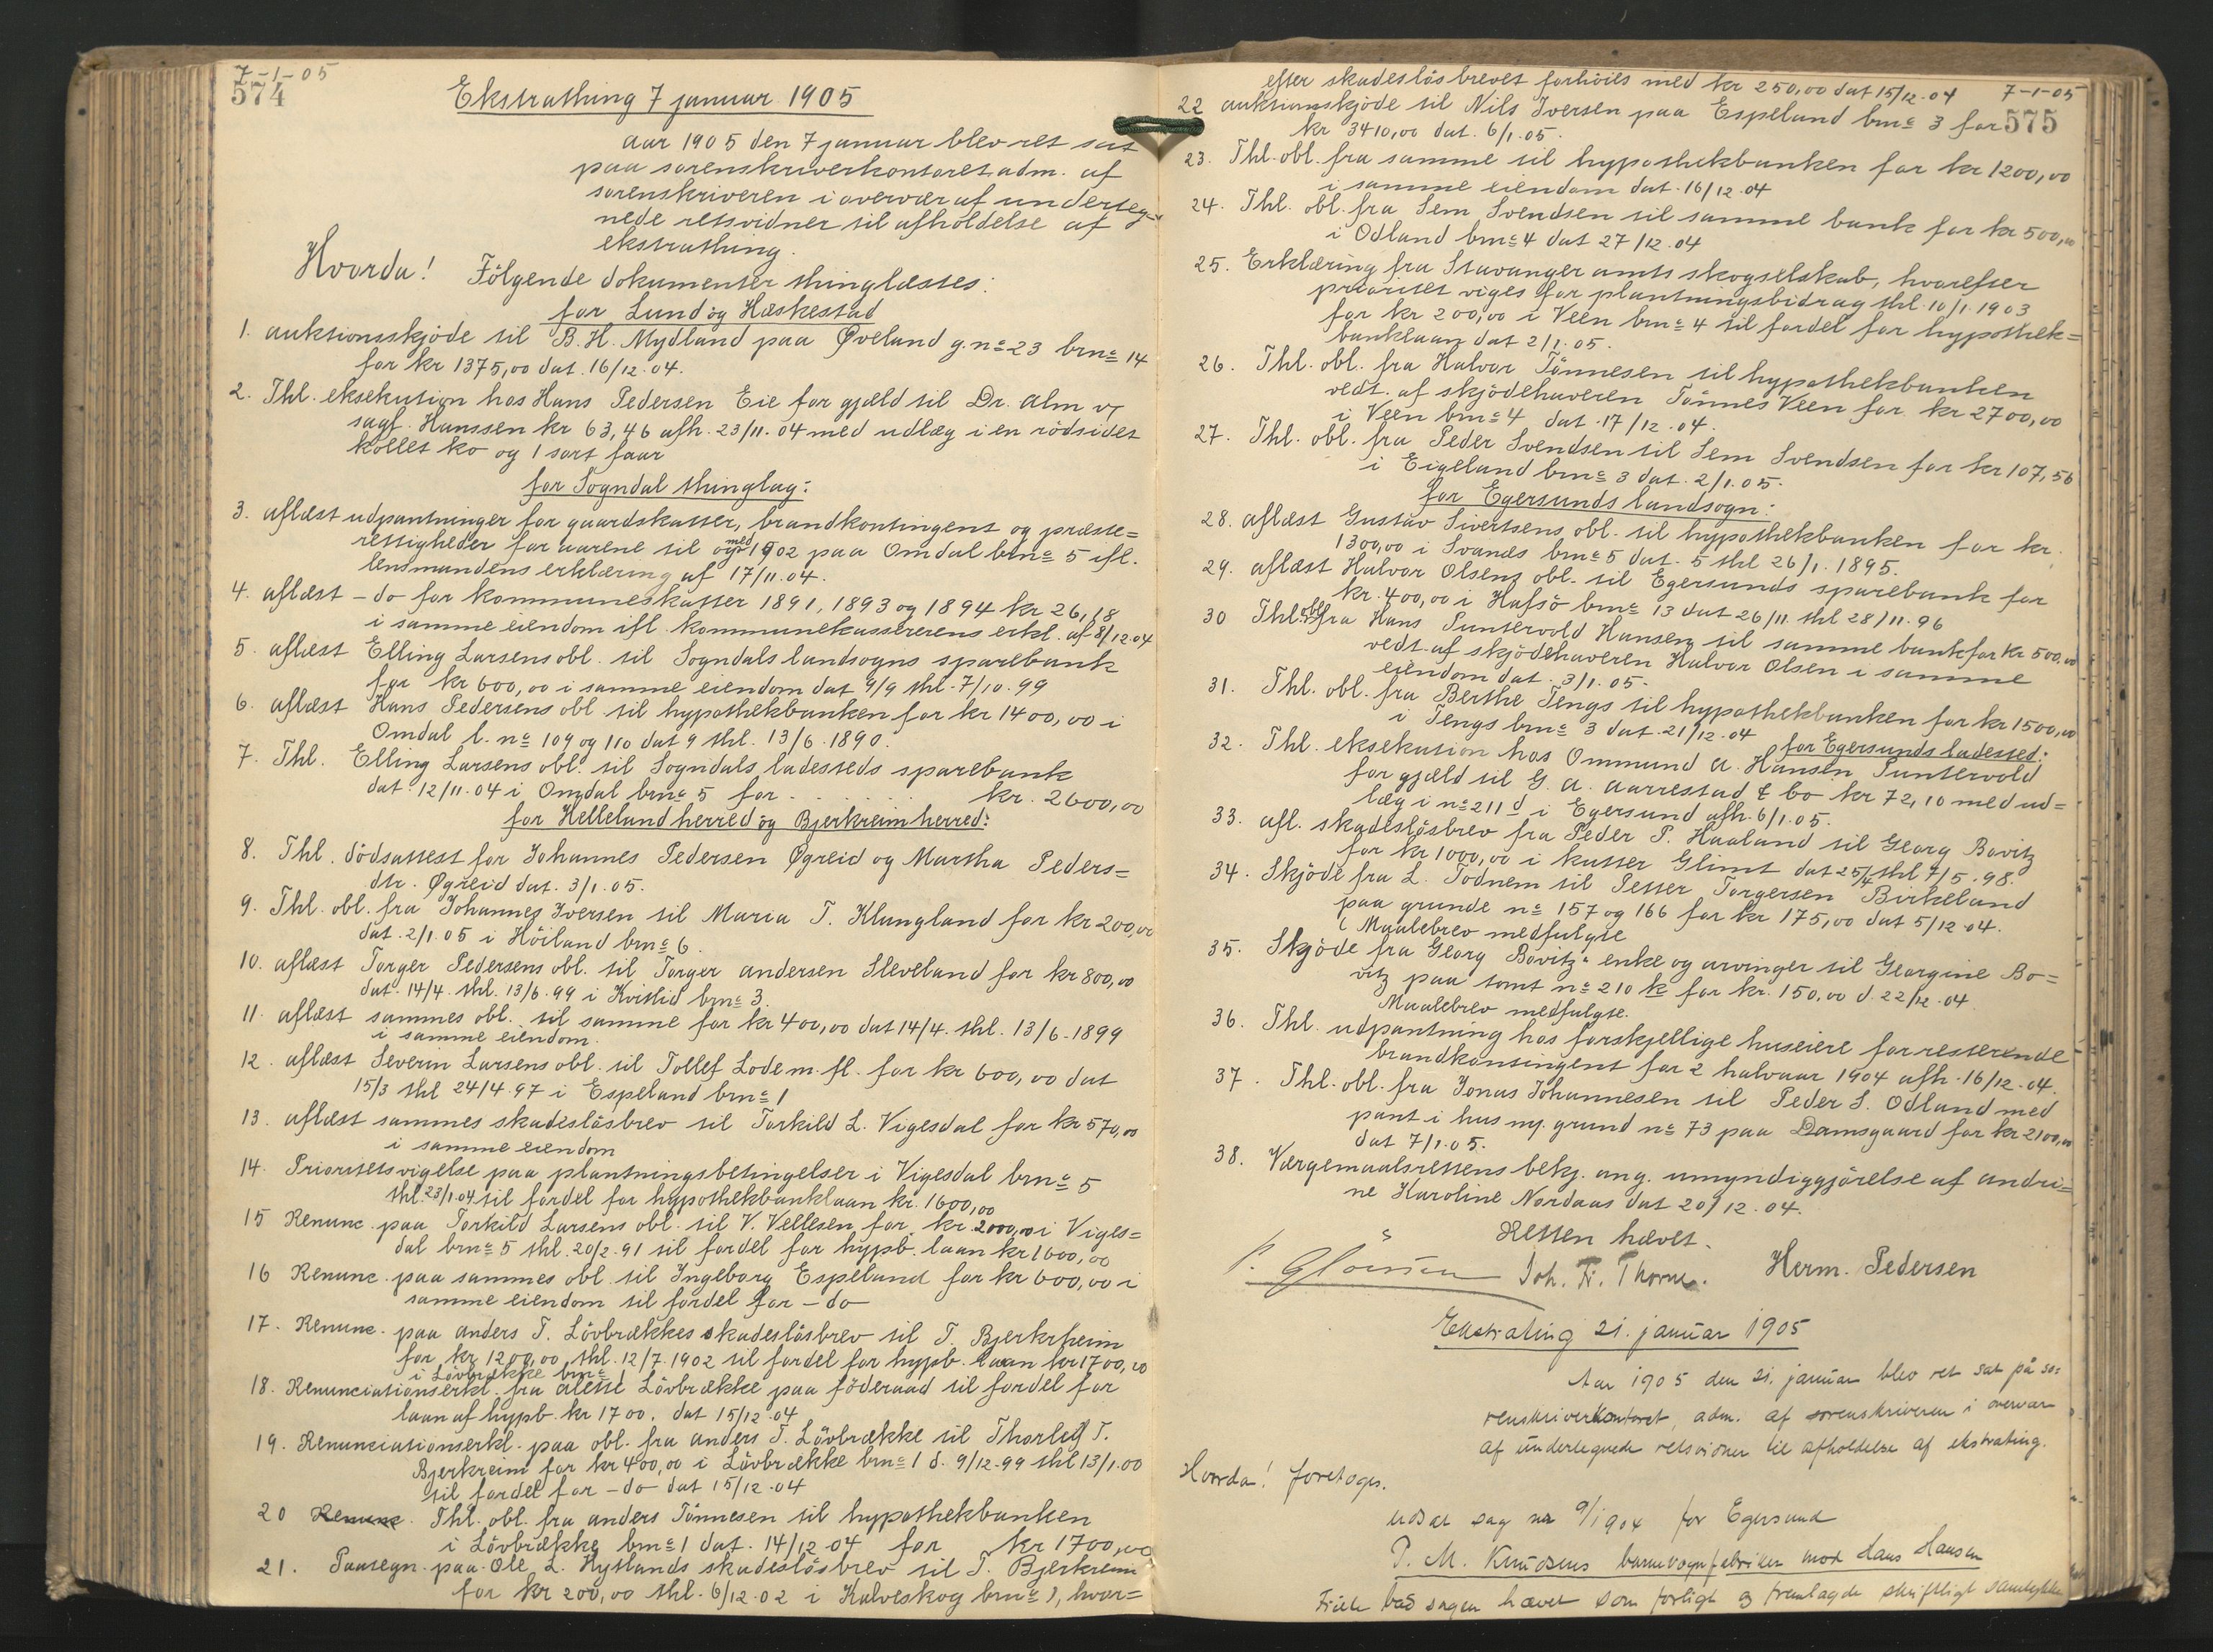 7-1-05
574
Ekstrathing 7 januar 1905
Aar 1905 den 7 januar blev ret sat
paa sorenskriverkontoret adm. af
sorenskriveren i overvær af underteg-
nede retsvidner til afholdelse af
ekstrathing.
Hvorda! Fölgende dokumenter thinglæstes:
for Lund og Heskestad
1. auktionsskjöde til B. H. Mydland paa Øveland g. no 23 brno 14
for kr 1375,00 dat. 16/12.04.
2. Thl. eksekution hos Hans Pedersen Eie for gjæld til Dr. Alm v/
sagf. Hanssen kr 63,46 afh. 23/11.04 med udlæg i en rödsidet
kollet ko og 1 sort faar
for Sogndal thinglag:
3. aflæst udpantninger for gaardskatter, brandkontingent og præste=
rettigheder for aarene til og med 1902 paa Omdal brno 5 ifl.
lensmandens erklæring af 17/11.04.
4. aflæst - do for kommuneskatter 1891, 1893 og 1894 kr 26,18
i samme eiendom ifl. kommunekassererens erkl. af 8/12.04
5. aflæst Elling Larsens obl. til Sogndals landsogns sparebank
for kr 600,00 i samme eiendom dat 9/9 thl. 7/10.99
6. aflæst Hans Pedersens obl til hypothekbanken for kr 1400,00 i
Omdal l. no 109 og 110 dat 9 thl. 13/6.1890.
7. Thl. Elling Larsens obl. til Sogndals ladesteds sparebank
dat. 12/11.04 i Omdal brno 5 for . . . . . kr. 2600,00
for Helleland herred og Bjerkreim herred:
8. Thl. dödsattest for Johannes Pedersen Øgreid og Martha Peders=
dtr. Øgreid dat. 3/1.05.
9. Thl. obl. fra Johannes Iversen til Maria T. Klungland for kr 200,00
dat. 2/1.05 i Höiland brno 6.
10. aflæst Torger Pedersens obl. til Torger Andersen Sleveland for kr 800,00
dat. 14/4. thl. 13/6.99 i Kvitlid brno 3.
11. aflæst sammes obl. til samme for kr 400,00 dat 14/4. thl. 13/6-1899
i samme eiendom.
12. aflæst Severin Larsens obl. til Tollef Lode m. fl. for kr 600,00 dat
15/3 thl 24/4 97 i Espeland brno 1
13. aflæst sammes skadeslösbrev til Torkild L. Vigesdal for kr 570,00
i samme eiendom
14. Prioritetsvigelse paa plantningsbetingelser i Vigesdal brno 5
thl. 23/1.04 til fordel for hypothekbanklaan kr. 1600,00
15 Renunc. paa Torkild Larsens obl. til V. Vellesen for kr. 2000,00 i Viges=
dal brno 5 thl. 20/2.91 til fordel for hypb. laan kr 1600,00
16 Renunc. paa sammes obl til Ingeborg Espeland for kr 600,00 i
samme eiendom til fordel for - do
17. Renunc. paa Anders T. Lövbrækkes skadeslösbrev til T. Bjerkrheim
for kr 1200,00 thl. 12/7.1902 til fordel for hypb. laan kr 1700,00
i Lövbrække brno 1
18. Renunciationserkl. fra Alette Lövbrække paa föderaad til fordel for
laan af hypb. kr 1700. dat 15/12.04
19. Renunciationserkl. paa obl. fra Anders T. Lövbrække til Thorleif T.
Bjerkreim for kr 400,00 i Lövbrække brno 1 d. 9/12.99 thl 13/1.00
til fordel for - do dat 15/12.04
20 Renunc. Thl. obl. fra Anders Tönnesen til hypothekbanken
i Lövbrække brno 1 dat. 14/12 04 for kr 1700,00
21. Paategn. paa Ole L. Hytlands skadeslösbrev til T. Bjerkreim
for kr 200,00 thl. 6/12.02 i Kalveskog brno 1, hvor=
7-1-05
575
efter skadeslösbrevet forhöies med kr 250,00 dat 15/12.04
22 auktionsskjöde til Nils Iversen paa Espeland brno 3 for
kr 3410,00 dat. 6/1.05.
23. Thl. obl. fra samme til hypothekbanken for kr 1200,00
i samme eiendom dat. 16/12.04
24. Thl. obl. fra Sem Svendsen til samme bank for kr 500,00
i Odland brno 4 dat 27/12.04
25. Erklæring fra Stavanger amts skogselskab, hvorefter
prioritet viges for plantningsbidrag thl. 10/1.1903
for kr 200,00 i Veen brno 4 til fordel for hypothek=
banklaan dat 2/1.05.
26. Thl. obl. fra Halvor Tönnesen til hypothekbanken
vedt. af skjödehaveren Tönnes Veen for kr 2700,00
i Veen brno 4 dat. 17/12.04.
27. Thl. obl. fra Peder Svendsen til Sem Svendsen for kr 107,56
i Eigeland brno 3 dat. 2/1.05.
for Egersunds landsogn:
28. aflæst Gustav Sivertsens obl. til hypothekbanken for kr.
1300,00 i Svanes brno 5 dat. 5 thl 26/1.1895.
29. aflæst Halvor Olsens obl. til Egersunds sparebank for
kr. 400,00 i Hafsö brno 13 dat 26/11 thl 28/11.96
30 Thl. obl. fra Hans Puntervold Hansen til samme bank for kr 500,00
vedt. af skjödehaveren Halvor Olsen i samme
eiendom dat. 3/1.05.
31. Thl. obl. fra Berthe Tengs til hypothekbanken for kr 1500,00
i Tengs brno 3 dat. 21/12.04
for Egersunds ladested:
32. Thl. eksekution hos Ommund A. Hansen Puntervold
for gjæld til G. A. Aarrestad & Co kr 72,10 med ud=
læg i no 211 d i Egersund afh. 6/1.05.
33. afl. skadeslösbrev fra Peder P. Haaland til Georg Bovitz
for kr 1000,00 i kutter Glimt dat 25/4 thl 7/5.98.
34. Skjöde fra L. Todnem til Petter Torgersen Birkeland
paa grunde no 157 og 166 for kr 175,00 dat 5/12.04.
( Maalebrev medfulgte
35. Skjöde fra Georg Bovitz's enke og arvinger til Georgine Bo=
vitz paa tomt no 210 k for kr. 150,00 d. 22/12.04.
Maalebrev medfulgte.
36. Thl. udpantning hos forskjellige huseiere for resterende
brandkontingent for 2 halvaar 1904 afh. 16/12.04.
37. Thl. obl. fra Jonas Johannesen til Peder S. Odland med
pant i hus m. grund no 73 paa Damsgaard for kr 2100,00
dat 7/1.05.
38. Værgemaalsrettens bekj. ang. umyndiggjörelse af Andri=
ne Karoline Nordaas dat 20/12.04.
Retten hævet.
Joh. Fr. Thorne. Herm. Pedersen
Ekstrating 21. januar 1905
Aar 1905 den 21. januar blev ret sat på so=
renskriverkontoret, adm. af sorenskriveren i overvær
af undertegnede retsvidner til afholdelse af ekstrating.
Hvorda! foretoges.
udsat sag no 9/1904 for Egersund
P. M. Knudsens barnevognfabriker mod Hans Hansen
bad sagen hævet som forligt og fremlagde skriftligt samtykke